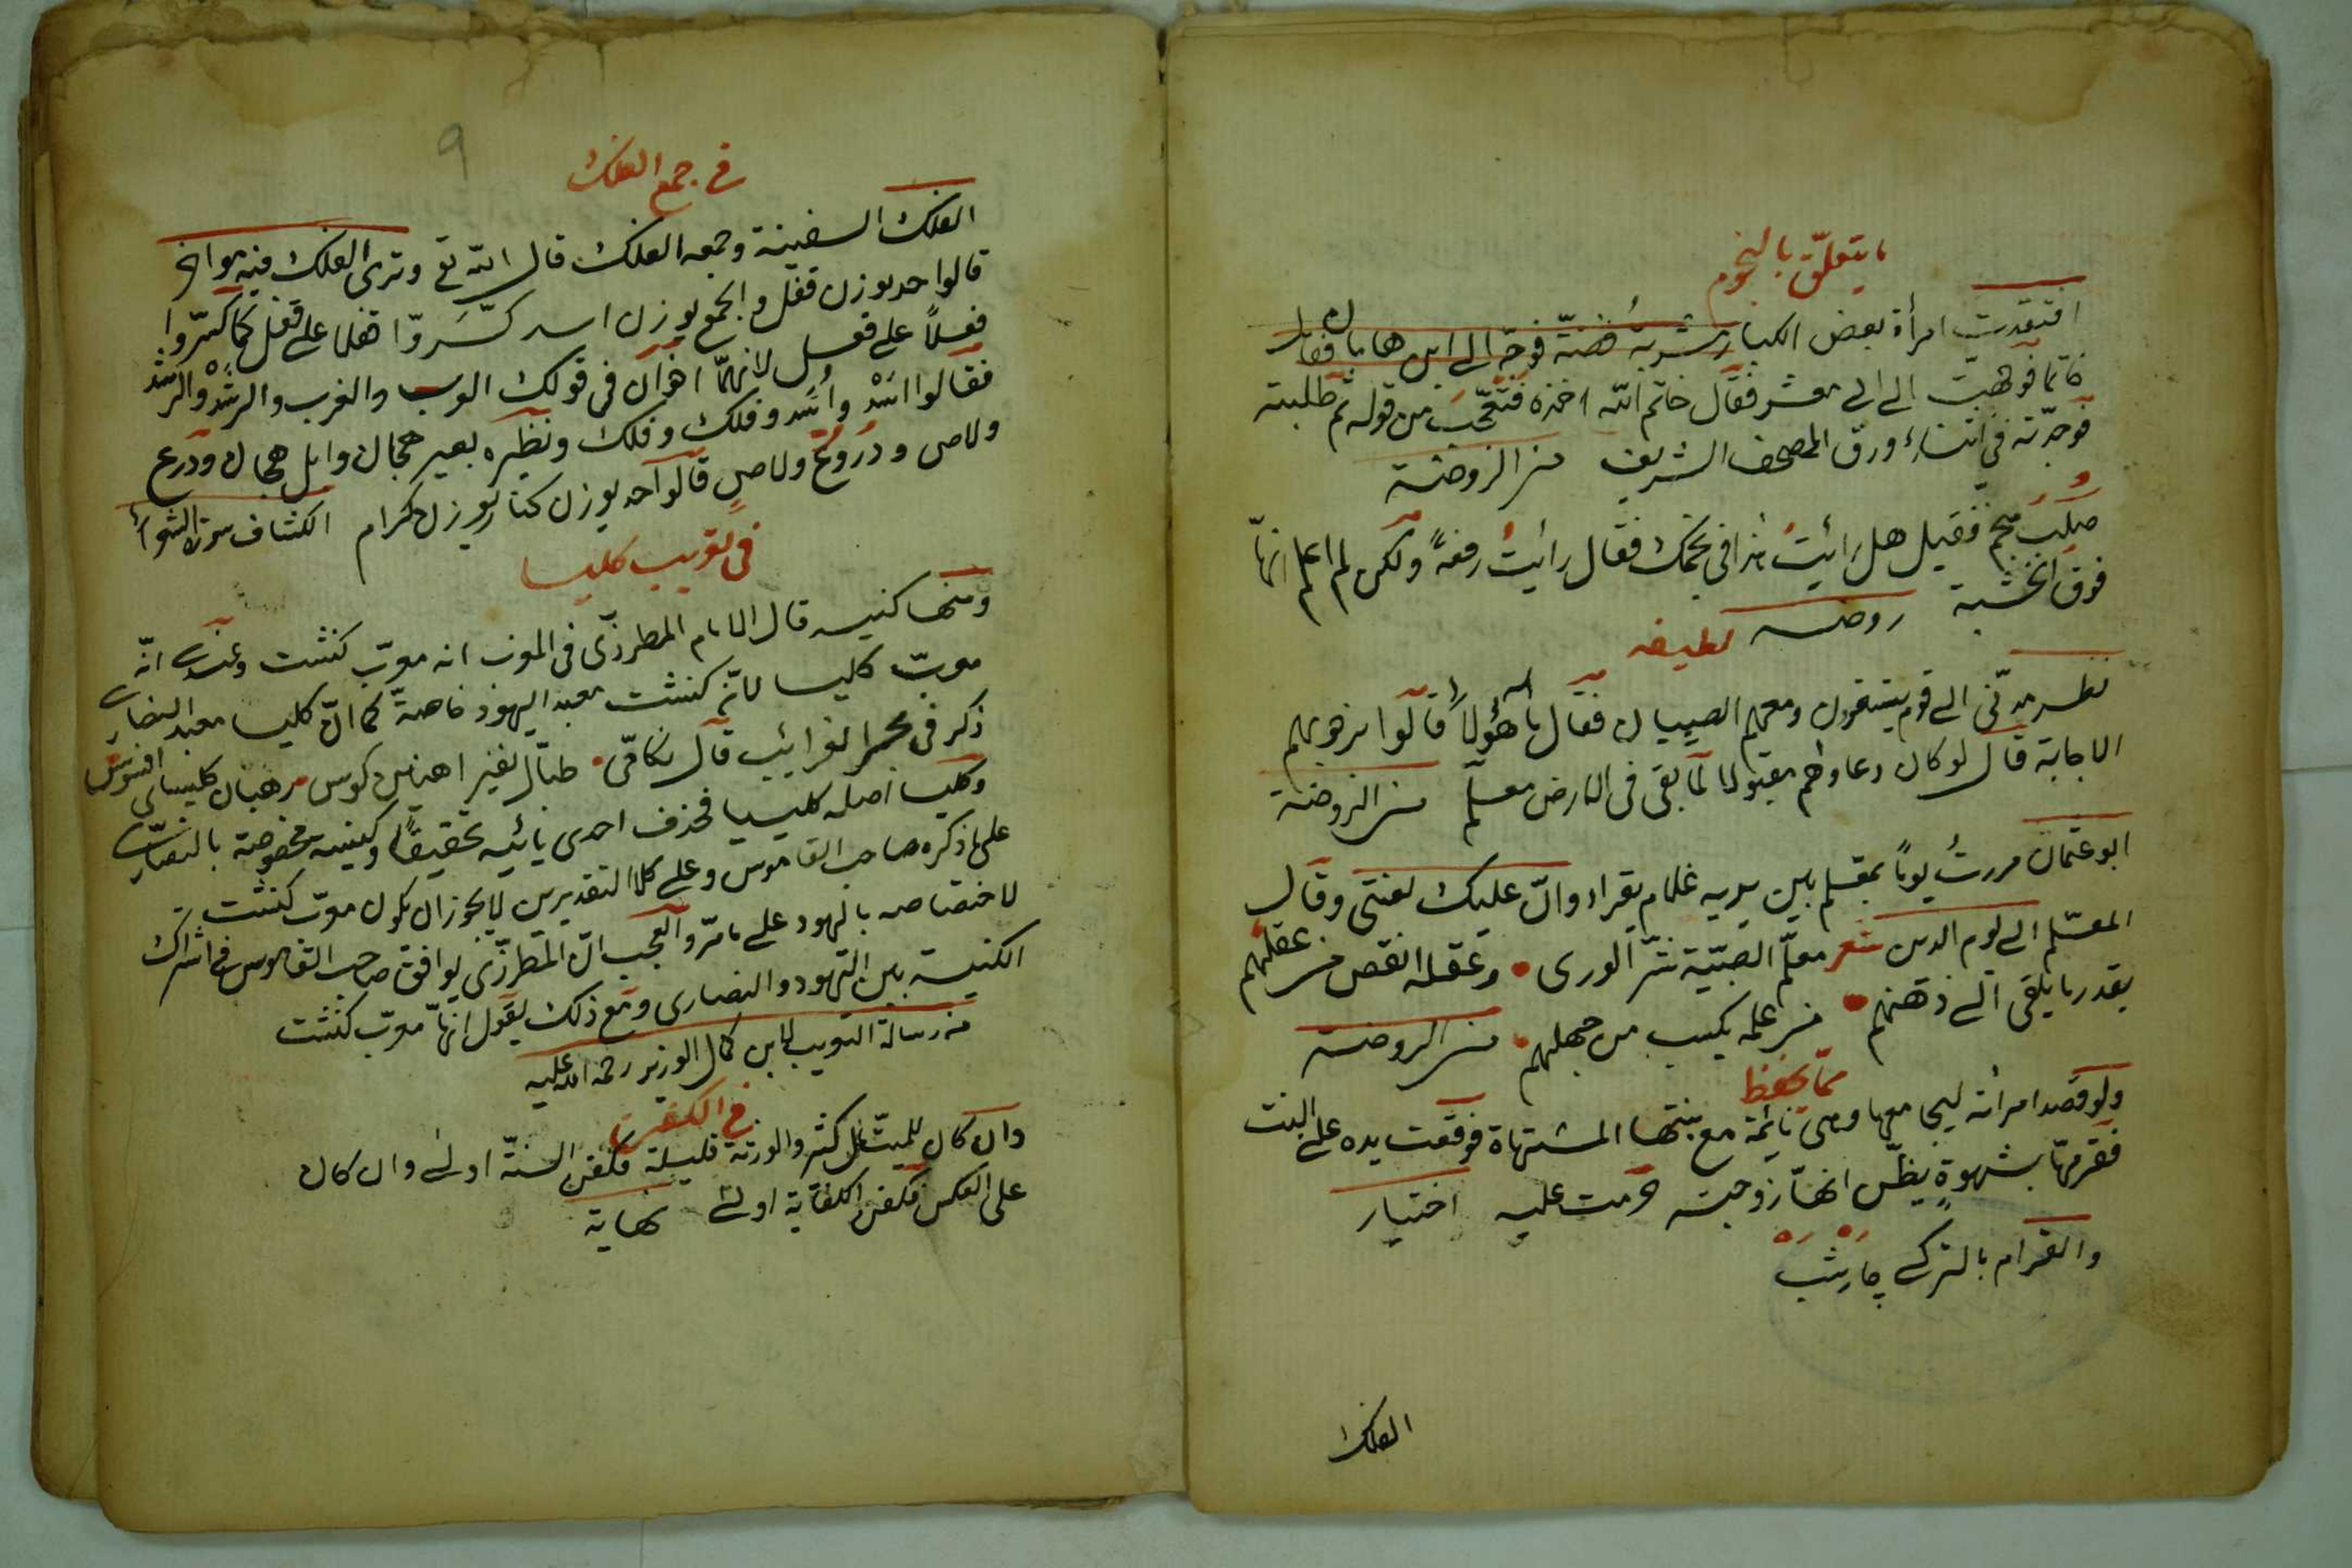 ما يتعلّق بالنجوم
افتقدت امرأة بعض الكبار مشربة فضة فوجّه الى ابن هامان فقال
خاتما فوهبت الى ابى معشر فقال خاتم الله اخذه فتعجّب من قوله ثم طلبته
فوجدته في اثناء ورق المصحف الشريف من الروضة
صلب منجم فقيل هل رائيت هذا في نجمك فقال رائيت رفعة ولكن لم اعلم انّها
فوق الخشبة روضه
لطيفه
نظر مدنّى الى قوم يستقون ومعهم الصبيان فقال ما هؤلاء قالوا نرجو بهم
الاجابة قال لو كان دعاؤهم مقبولا لما بقى فى الارض معلّم من الروضة
ابو عثمان مررت يوما بمعلم بين يديه غلام يقراء وانّ عليك لعنتى وقال
المعلّم الى يوم الدين شعر معلّم الصبية شرّ الورى وعقله انقص من عقلهم
بقدر ما يلقى الى ذهنهم من علمه يكسب من جهلهم من الروضة
ممّا يحفظ
ولو قصد امرأته ليجامعها وهى نائمة مع بنتها المشتهاة فوقعت يده على البنت
فقرصها بشهوة يظنّ انها زوجته حرمت عليه اختيار
والقرام بالتركى چارشب
الفلك
٩
في جمع الفلك
الفلك السفينة وجمعه الفلك قال الله تع وترى الفلك فيه مواخر
قالوا احد بوزن قفل والجمع بوزن اسد كسّروا فعلا على فعل كما كسّروا
فعلاً على فعل لانهما اخوان فى قولك العرب والعرب والرشد والرشد
فقالوا اسد وأسد وفلك وفلك ونظيره بعير هجان وابل هجان ودرع
دلاص ودروع دلاص قالوا احد بوزن كناز بوزن كرام الكشاف سورة الشعراء
فى تعريب كليسا
ومنها كنيسه قال الامام المطرزّى فى المغرب انه معرّب كنشت وعندى انّه
معرّب كليسا لانّ كنشت معبد اليهود خاصةً كما انّ كليسا معبد النصارى
ذكر فى بحر الغرائب قال نظامّى طبّال نفير اهنين كوس رهبان كليساى افسوس
وكليسا اصله كليسيا فحذف احدى يائيه تخفيفا وكنيسه مخصوصة بالنصارى
على ما ذكره صاحب القاموس وعلى كلا التقديرين لا يجوز ان يكون معرّب كنشت
لاختصاصه باليهود على ما مرّ والعجب انّ المطرزّى يوافق صاحب القاموس فى اشتراك
الكنيسة بين اليهود والنصارى ومع ذلك يقول انهّا معرّب كنشت
من رسالة التعريب لابن كمال الوزير رحمة الله عليه
في الكفن
وان كان للميّت مال كثير والورثة قليلة فكفن السنّة اولى وان كان
على العكس فكفن الكفاية اولى نهاية